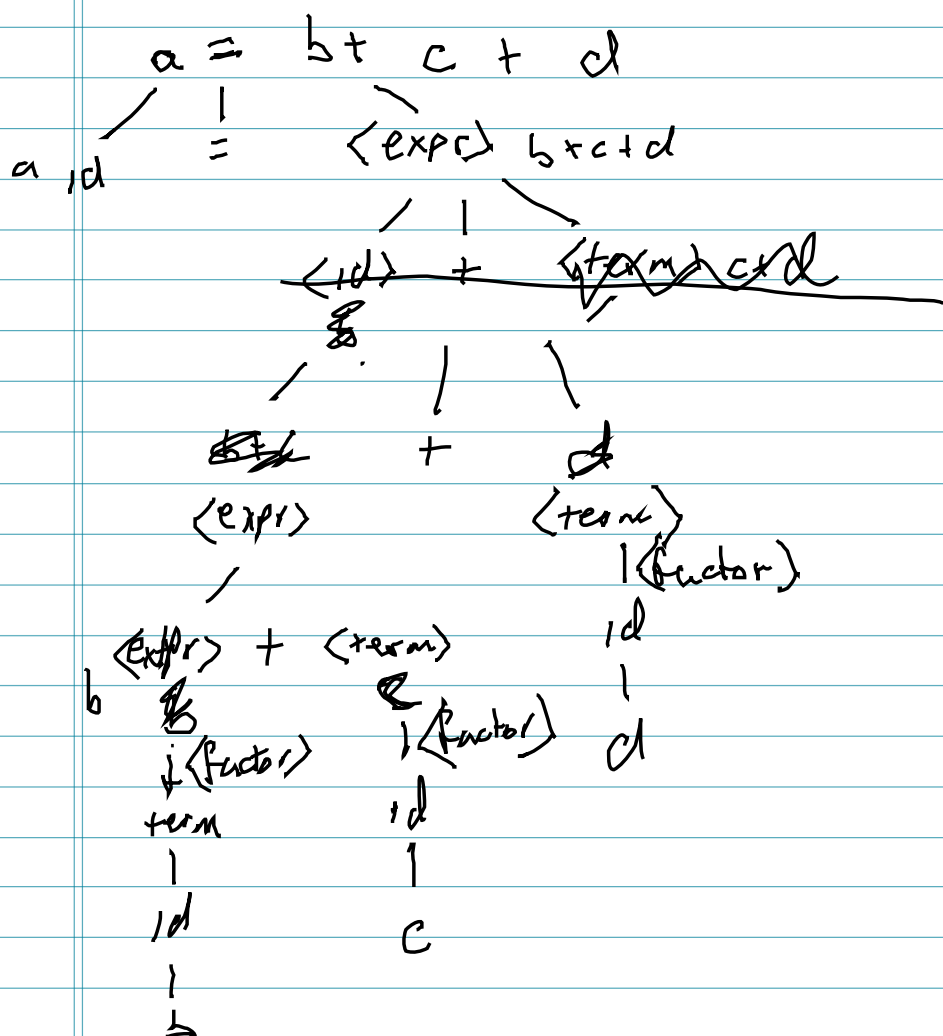 a = b + c + d
a id = <expr> b + c + d
<id> + <term> c + d
+ d
<expr> <term>
<factor>
<expr> + <term> id
b
<factor> <factor> d
term id
id c
b